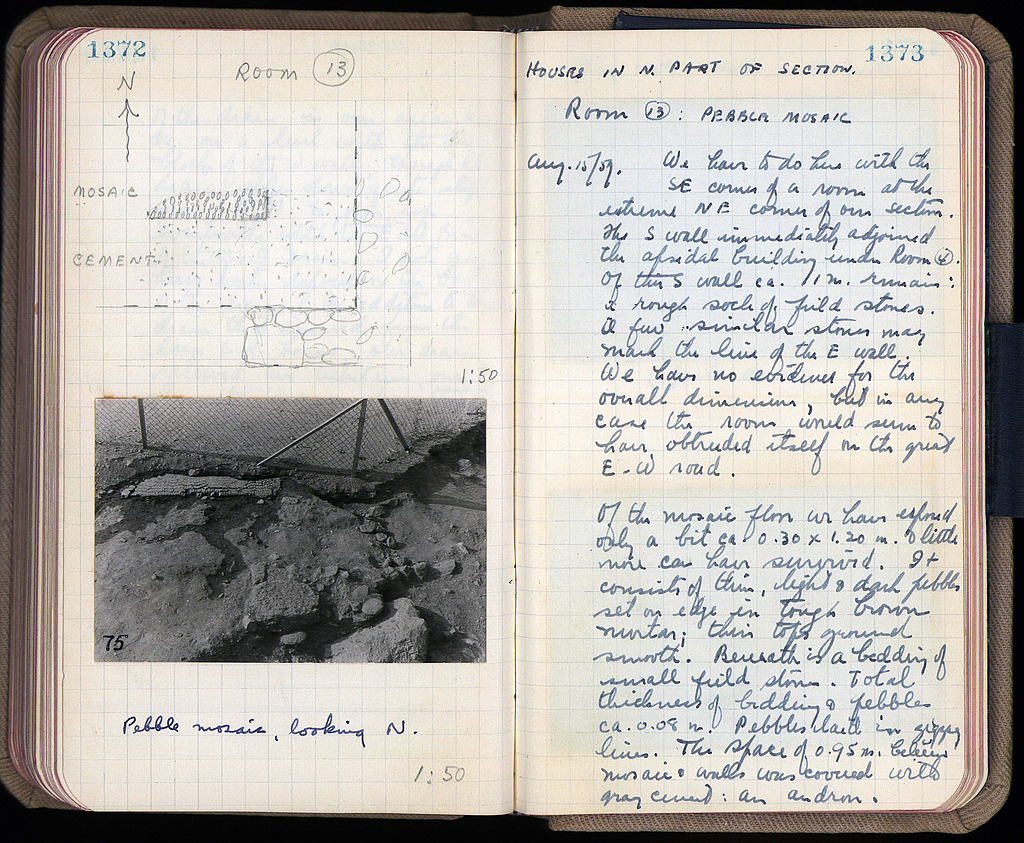 1372
N
ROOM 13
MOSAIC
CEMENT
1:50
75
Pebble mosaic, looking N.
1:50
1373
HOUSES IN N. PART OF SECTION.
ROOM 13 : PEBBLE MOSAIC
Aug. 15/59. We have to do here with the
SE corner of a room at the
extreme NE corner of our section.
The S wall immediately adjoined
the apsidal building under Room 4.
Of this S wall ca. 1 m. remains:
a rough socle of field stones.
A few similar stones may
mark the line of the E wall.
We have no evidence for the
overall dimensions, but in any
case the room would seem to
have obtruded itself on the great
E-W road.
Of the mosaic floor we have exposed
only a bit ca 0.30 x 1.20 m. & little
more can have survived. It
consists of thin, light & dark pebbles
set on edge in tough brown
mortar; their tops ground
smooth. Beneath is a bedding of
small field stones. Total
thickness of bedding & pebbles
ca. 0.08 m. Pebbles laid in zigzag
lines. The space of 0.95 m. between
mosaic & walls was covered with
gray cement: an andron.